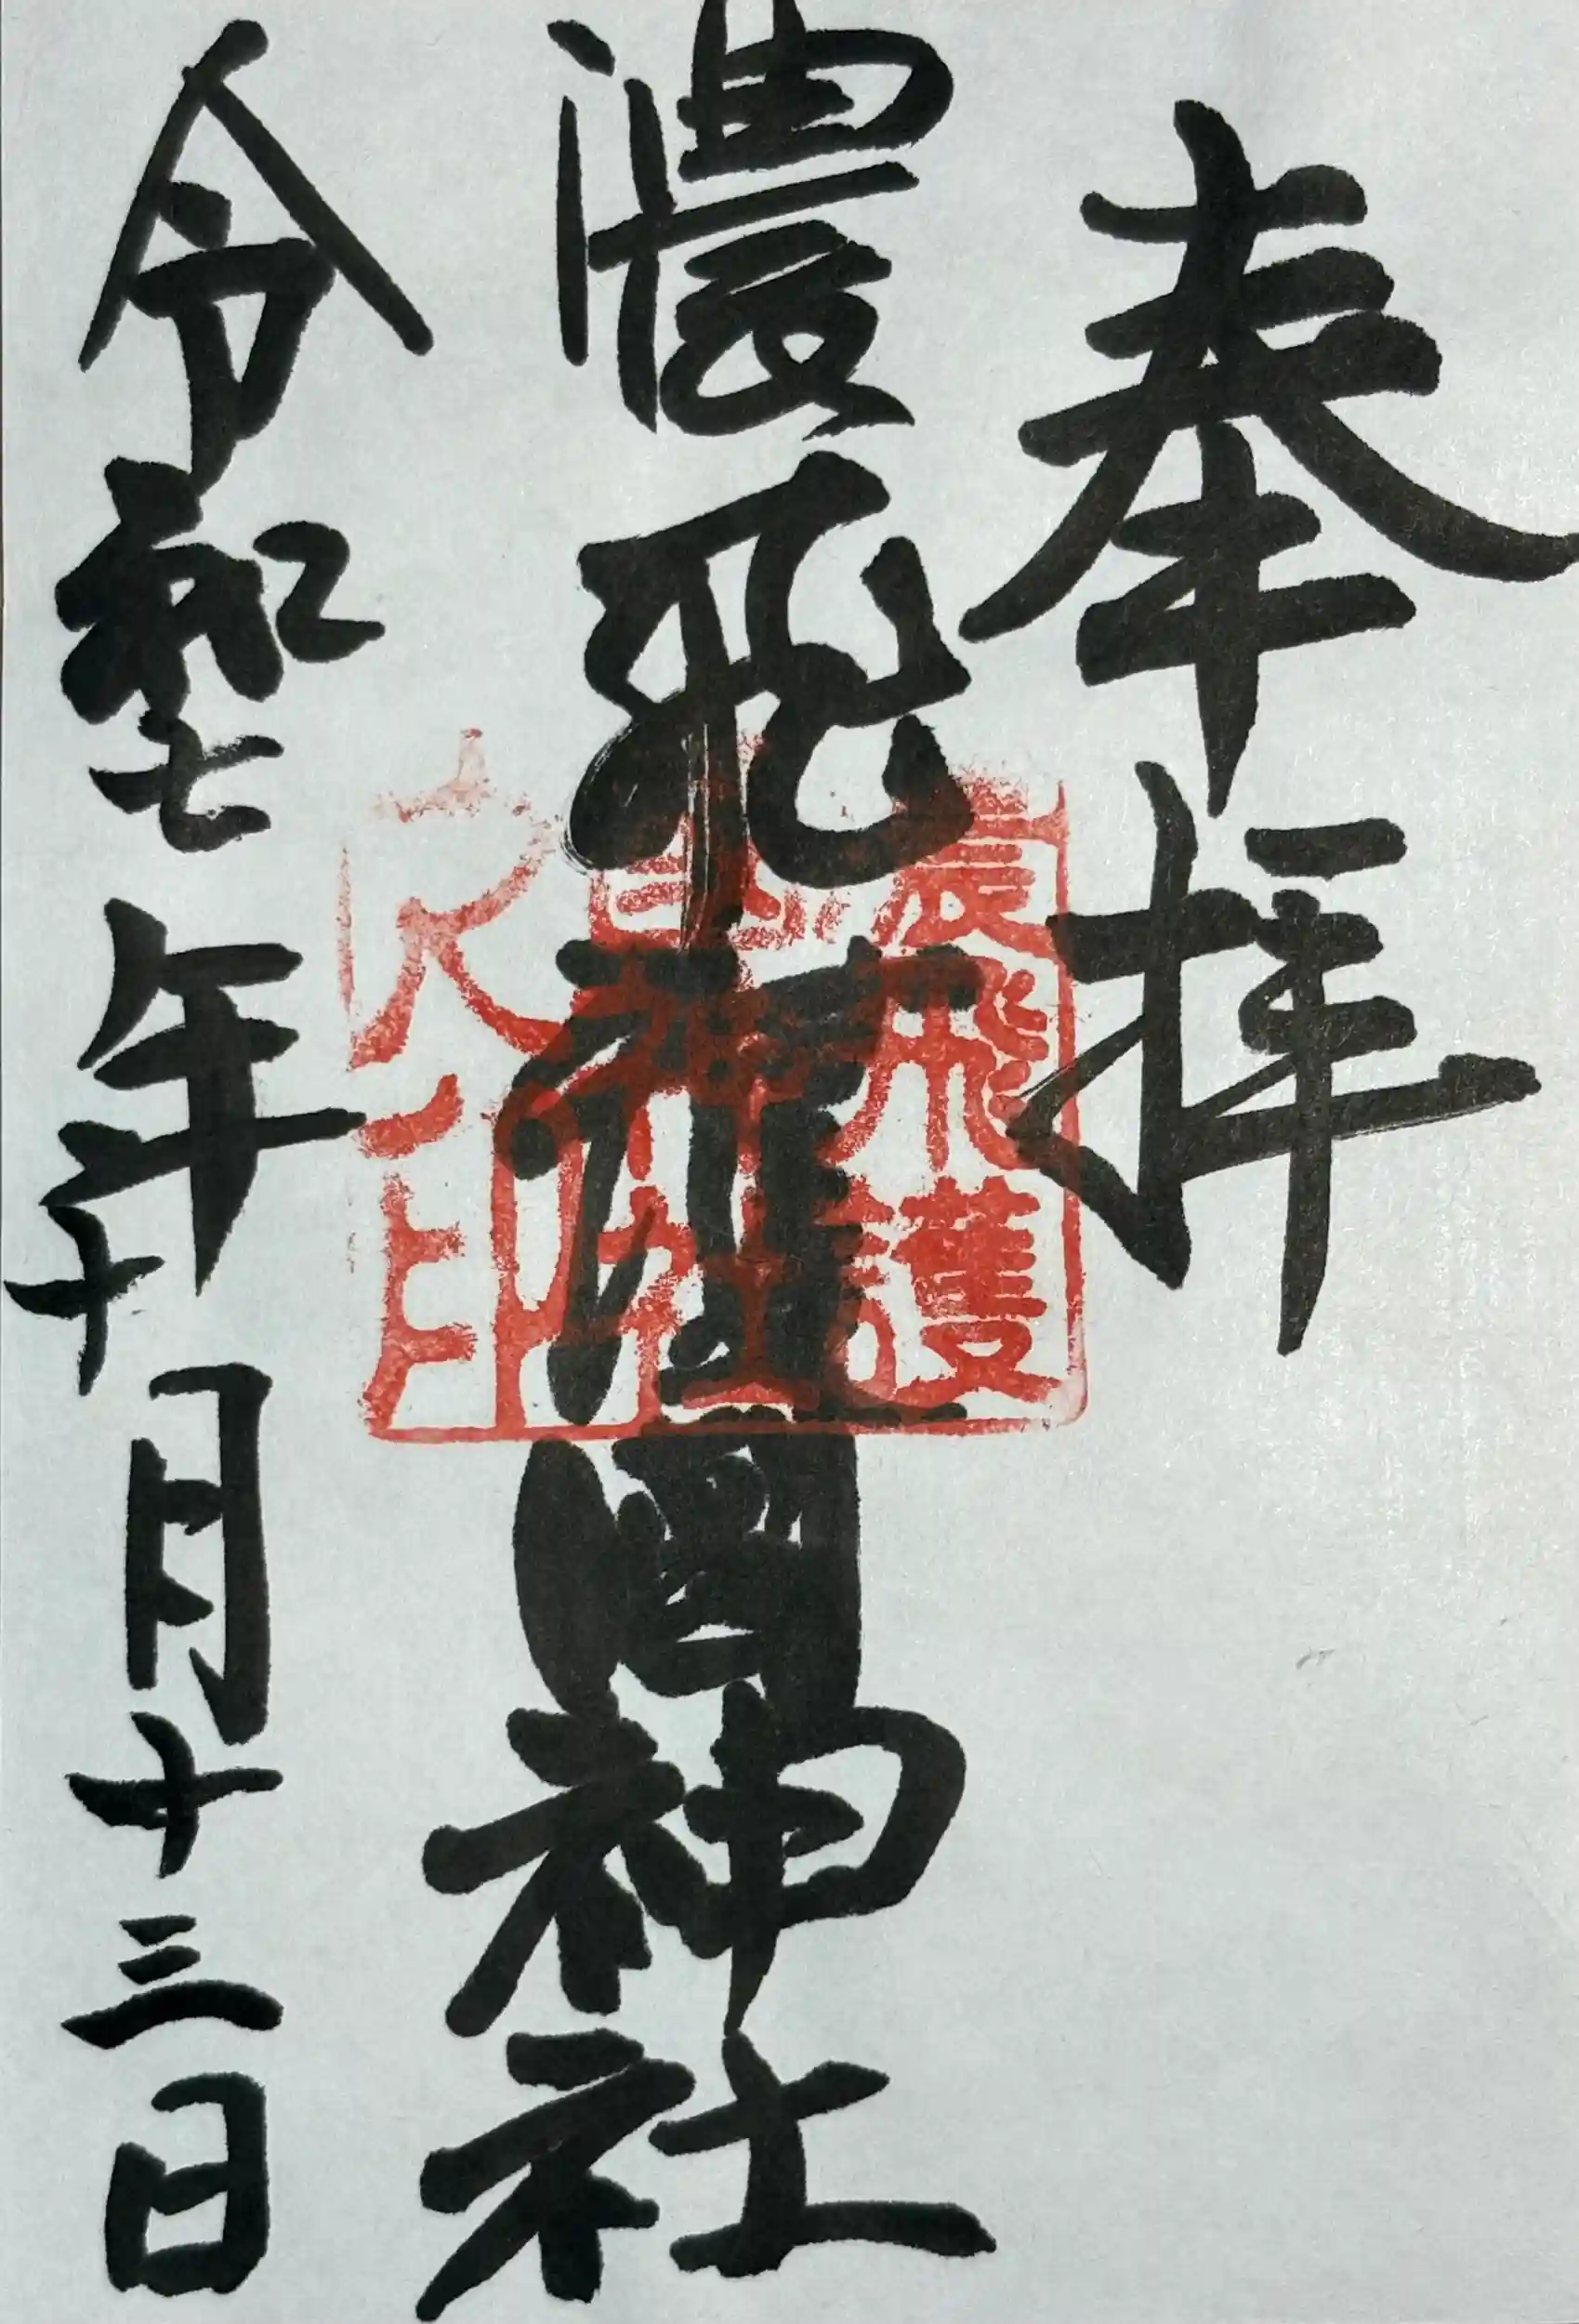 奉拝
濃飛護國神社
令和七年十月十三日
濃飛護
國神社
之印